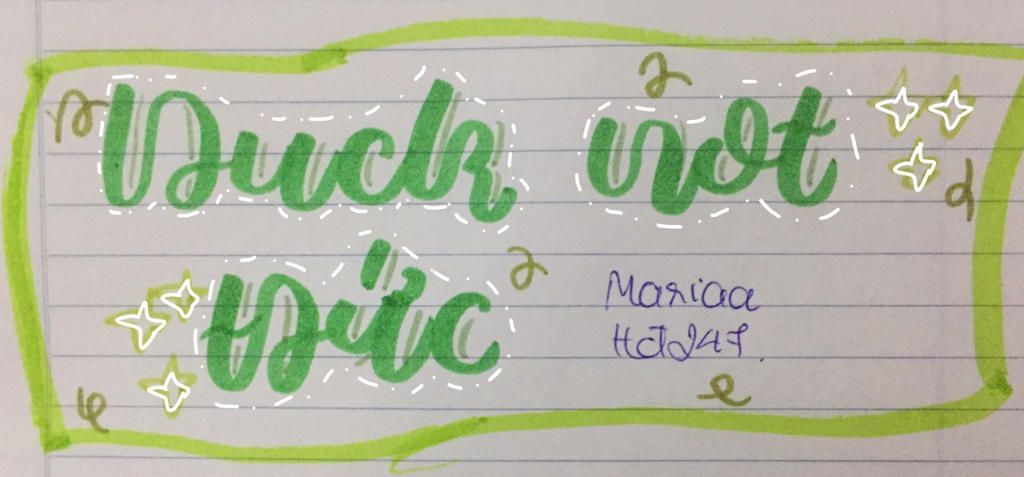 Duck not
Đức
Mariaa
HĐ247.